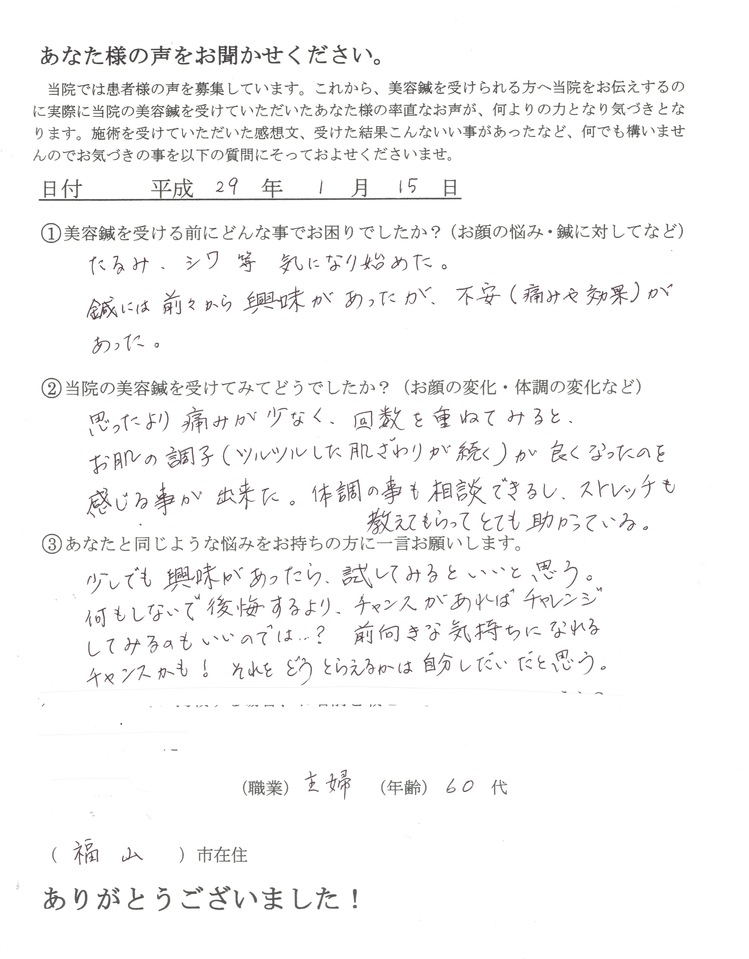 あなた様の声をお聞かせください。
当院では患者様の声を募集しています。これから、美容鍼を受けられる方へ当院をお伝えするの
に実際に当院の美容鍼を受けていただいたあなた様の率直なお声が、何よりの力となり気づきとな
ります。施術を受けていただいた感想文、受けた結果こんないい事があったなど、何でも構いませ
んのでお気づきの事を以下の質問にそっておよせくださいませ。
日付 平成 29 年 1 月 15 日
①美容鍼を受ける前にどんな事でお困りでしたか?(お顔の悩み・鍼に対してなど)
たるみ、シワ等 気になり始めた。
鍼には前々から興味があったが、不安(痛みや効果)が
あった。
②当院の美容鍼を受けてみてどうでしたか?(お顔の変化・体調の変化など)
思ったより痛みが少なく、回数を重ねてみると、
お肌の調子(ツルツルした肌ざわりが続く)が良くなったのを
感じる事が出来た。体調の事も相談できるし、ストレッチも
教えてもらってとても助かっている。
③あなたと同じような悩みをお持ちの方に一言お願いします。
少しでも興味があったら、試してみるといいと思う。
何もしないで後悔するより、チャンスがあればチャレンジ
してみるのもいいのでは…? 前向きな気持ちになれる
チャンスかも! それをどうとらえるかは自分しだいだと思う。
(職業) 主婦 (年齢) 60 代
( 福山 )市在住
ありがとうございました!